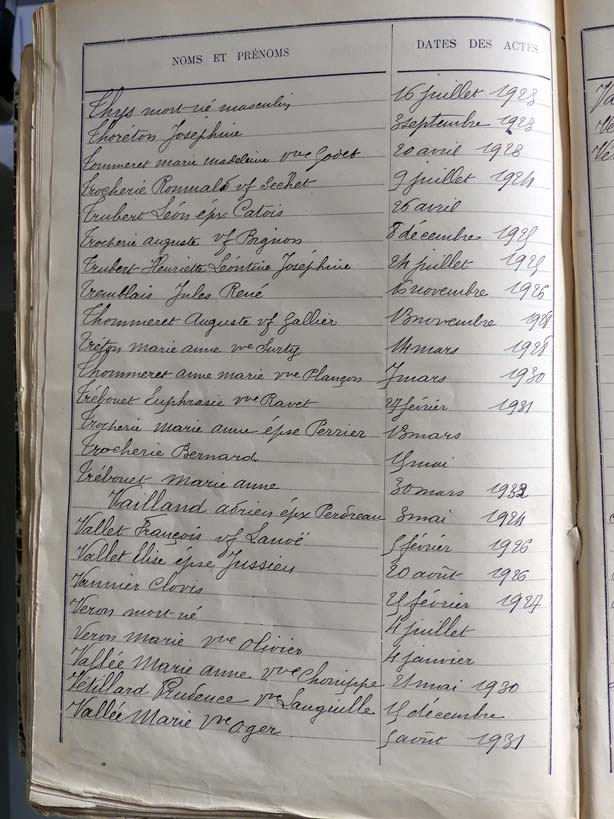 NOMS ET PRÉNOMS DATES DES ACTES
Thys mort-né masculin 16 juillet 1923
Thoréton Joséphine 3 septembre 1923
Tommeret marie madeleine vve Godet 20 avril 1923
Trocherie Romuald vf Séchet 9 juillet 1924
Trubert Léon épx Catois 26 avril
Trocherie auguste vf Bignon 8 décembre 1925
Trubert Henriette Léontine Joséphine 24 juillet 1925
Tremblais Jules René 16 novembre 1926
Thommeret Auguste vf Gallier 13 novembre 1928
Tréton marie anne vve 14 mars 1928
Thommeret anne marie vve Plançon 7 mars 1930
Trébouet Euphrasie vve Ravet 27 février 1931
Trocherie marie anne épse Perrier 13 mars
Trocherie Bernard 5 mai
Trébouet Marie anne 30 mars 1932
Vailland adrien épx Perdreau 3 mai 1924
Vallet François vf Lanoë 5 février 1926
Vallet Elise épse Jussieu 20 août 1926
Vannier Clovis 25 février 1927
Veron mort-né 4 juillet
Veron marie vve olivier 4 janvier
Vallée Marie anne vve Chonippe 21 mai 1930
Vétillard Prudence vve Languille 15 décembre
Vallée Marie vve Ager 5 août 1931